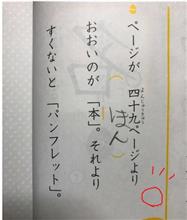 ページが 四十九ページより
おおいのが 「本」。それより
ほん
すくないと 「パンフレット」。